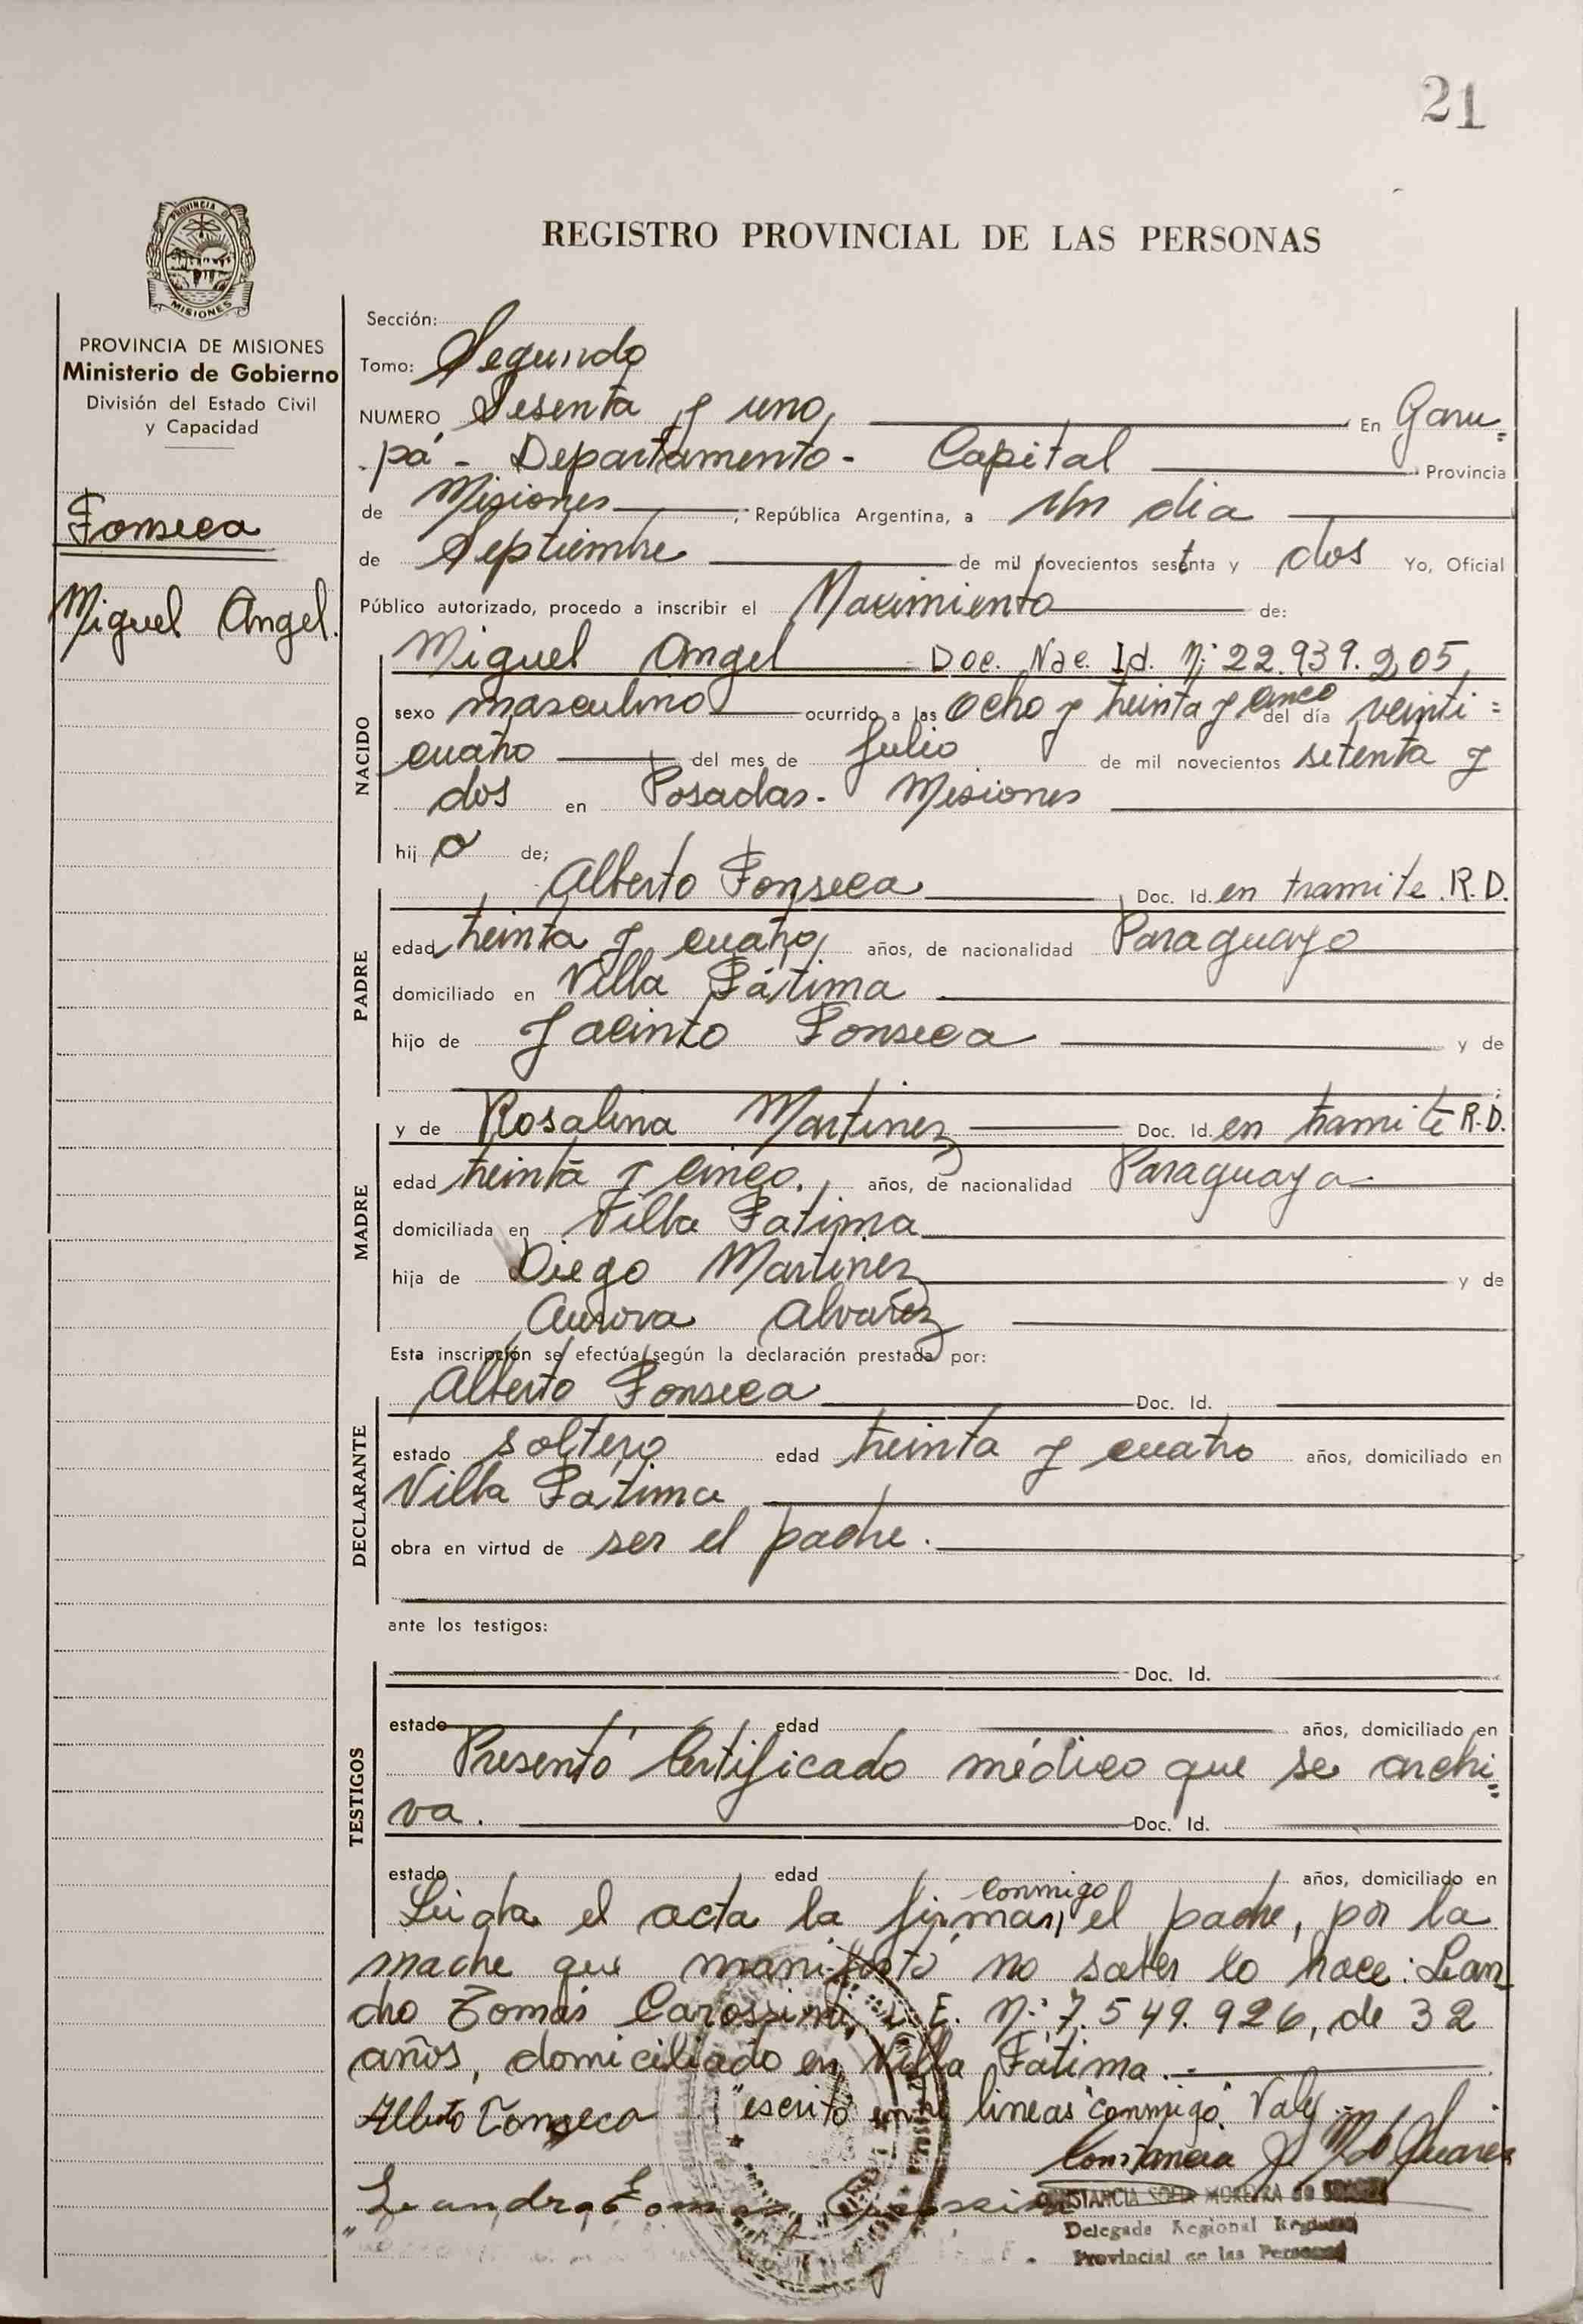 21
PROVINCIA DE
MISIONES
REGISTRO PROVINCIAL DE LAS PERSONAS
PROVINCIA DE MISIONES
Ministerio de Gobierno
División del Estado Civil
y Capacidad
Fonseca
Miguel Angel.
Sección:
Tomo: Segundo
NUMERO Sesenta y uno, En Garu=
pá - Departamento - Capital Provincia
de Misiones, República Argentina, a Un dia
de Septiembre de mil novecientos setenta y dos Yo, Oficial
Público autorizado, procedo a inscribir el Nacimiento de:
NACIDO
Miguel Angel Doc. Nac. Id. Nº 22.939.205,
sexo masculino ocurrido a las Ocho y treinta y cinco del día veinti=
cuatro del mes de Julio de mil novecientos setenta y
dos en Posadas - Misiones
hij o de;
PADRE
Alberto Fonseca Doc. Id. en tramite. R.D.
edad treinta y cuatro, años, de nacionalidad Paraguayo
domiciliado en Villa Fátima
hijo de Jacinto Fonseca y de
MADRE
y de Rosalina Martinez Doc. Id. en tramite R.D.
edad treinta y cinco. años, de nacionalidad Paraguaya
domiciliada en Villa Fatima
hija de Diego Martinez y de
Aurora Alvarez
Esta inscripción se efectúa según la declaración prestada por:
DECLARANTE
Alberto Fonseca Doc. Id.
estado soltero edad treinta y cuatro años, domiciliado en
Villa Fatima
obra en virtud de ser el padre.
ante los testigos:
TESTIGOS
Doc. Id.
estado edad años, domiciliado en
Presentó Certificado médico que se archi=
va. Doc. Id.
estado edad años, domiciliado en
conmigo
Leida el acta la firman, el padre, por la
madre que manifestó no saber lo hace: Lean
dro Tomás Carossini, L.E. Nº 7.549.926, de 32
años, domiciliado en Villa Fatima.-
Alberto Fonseca "escrito entre lineas "conmigo" Vale.-
Constancia S. M. de Suarez
Leandro Tomas Carossini
CONSTANCIA SOFIA MOREIRA de
Delegada Regional Registro
Provincial de las Personas